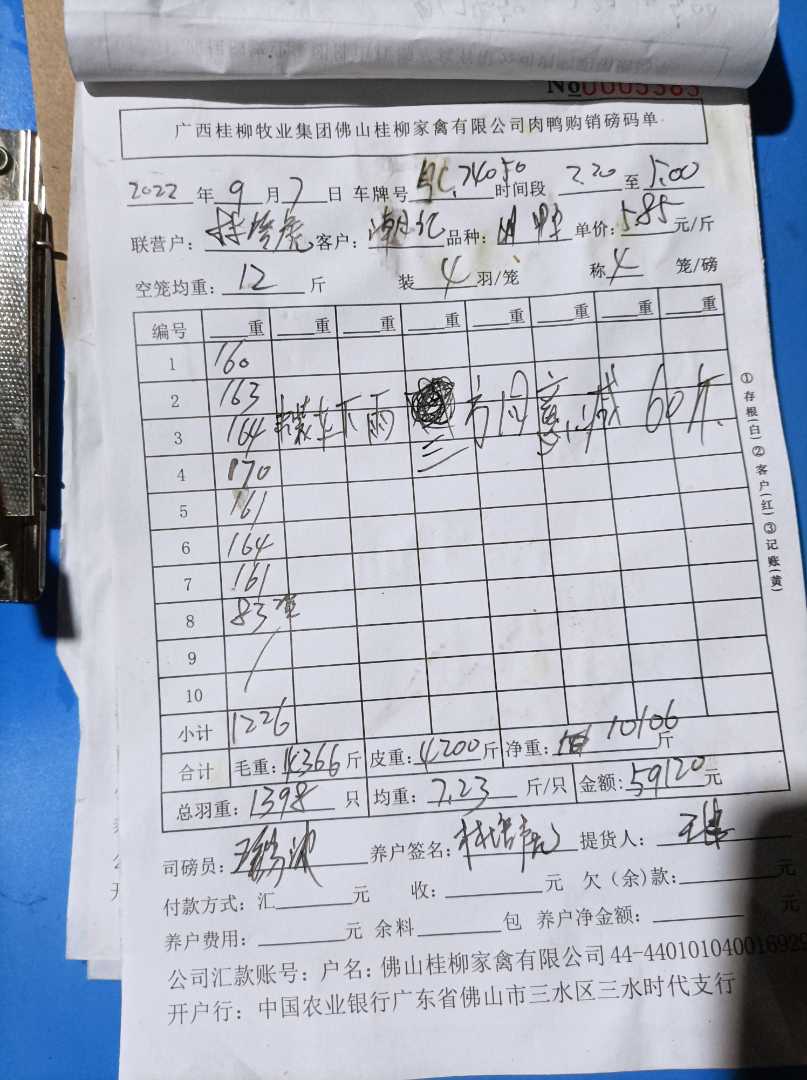 No0005385
广西桂柳牧业集团佛山桂柳家禽有限公司肉鸭购销磅码单
2022 年 9 月 7 日 车牌号 74050 时间段 2.20 至 5.00
联营户: 客户: 潮记 品种: 单价: 5.85 元/斤
空笼均重: 12 斤 装 4 羽/笼 称 4 笼/磅
编号 重 重 重 重 重 重 重 重
1 160
2 163
3 164 装车下雨 三方同意减60斤
4 170
5 161
6 164
7 161
8 83
9 /
10
小计 1226
合计 毛重: 14366 斤 皮重: 4200 斤 净重: 10106 斤
总羽重: 1398 只 均重: 7.23 斤/只 金额: 59120 元
司磅员: 养户签名: 提货人:
付款方式: 汇 元 收: 元 欠（余）款: 元
养户费用: 元 余料 包 养户净金额: 元
公司汇款账号: 户名: 佛山桂柳家禽有限公司 44-440101040016929
开户行: 中国农业银行广东省佛山市三水区三水时代支行
①存根(白)②客户(红)③记账(黄)